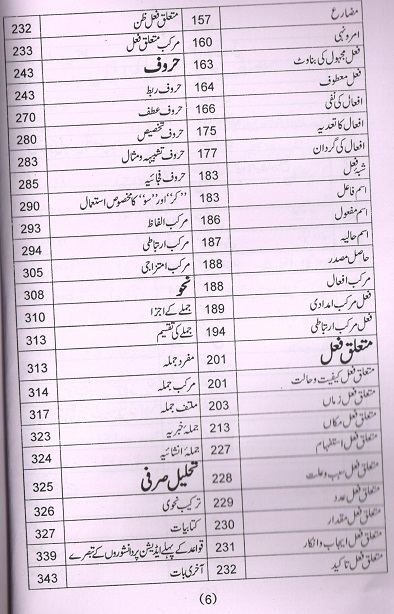 مضارع 157
امر و نہی 160
فعل مجہول کی بناوٹ 163
فعل معطوف 164
افعال کی نفی 166
افعال کا تعدیہ 175
افعال کی گردان 177
شبہ فعل 183
اسم فاعل 183
اسم مفعول 186
اسم حالیہ 187
حاصل مصدر 188
مرکب افعال 188
فعل مرکب امدادی 189
فعل مرکب ارتباطی 194
متعلق فعل 201
متعلق فعل کیفیت و حالت 201
متعلق فعل زماں 203
متعلق فعل مکاں 213
متعلق فعل استفہام 227
متعلق فعل سبب و علت 228
متعلق فعل عدد 229
متعلق فعل مقدار 230
متعلق فعل ایجاب و انکار 231
متعلق فعل تاکید 232
متعلق فعل ظن 232
مرکب متعلق فعل 233
حروف 243
حروف ربط 243
حروف عطف 270
حروف تخصیص 280
حروف تشبیہہ و مثال 283
حروف فجائیہ 285
"کر" اور "سو" کا مخصوص استعمال 290
مرکب الفاظ 293
مرکب ارتباطی 294
مرکب امتزاجی 305
نحو 308
جملے کے اجزا 310
جملے کی تقسیم 313
مفرد جملہ 313
مرکب جملہ 314
ملتف جملہ 317
جملہ خبریہ 323
جملہ انشائیہ 324
تحلیل صرفی 325
ترکیب نحوی 326
کتابیات 327
قواعد کے پہلے ایڈیشن پر دانشوروں کے تبصرے 339
آخری بات 343
(6)